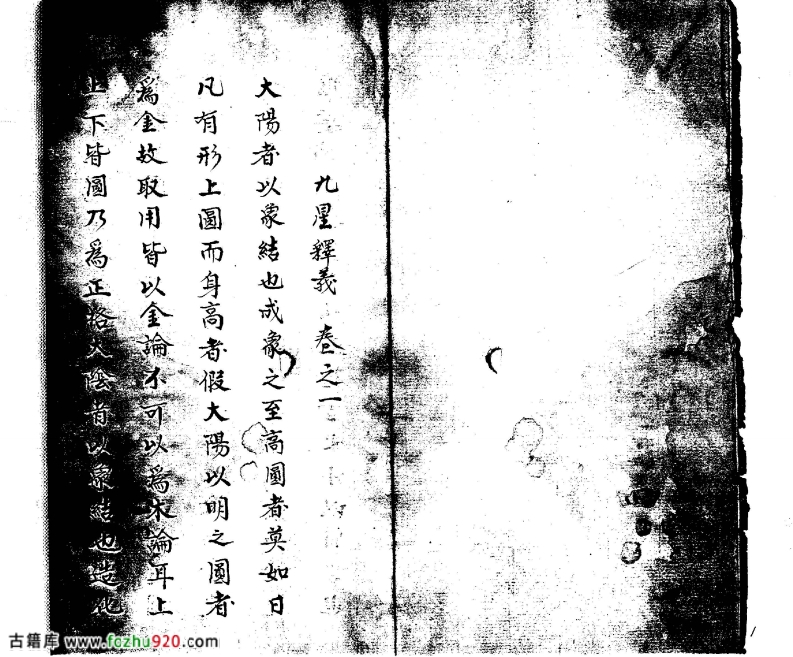 九星釋義 卷之一
大陽者以象結也成象之至高圓者莫如日
凡有形上圓而身高者假大陽以明之圓者
為金故取用皆以金論不可以為木論耳上
上下皆圓乃為正格大陰者以象結也造化
古籍库 www.fozhu920.com
1